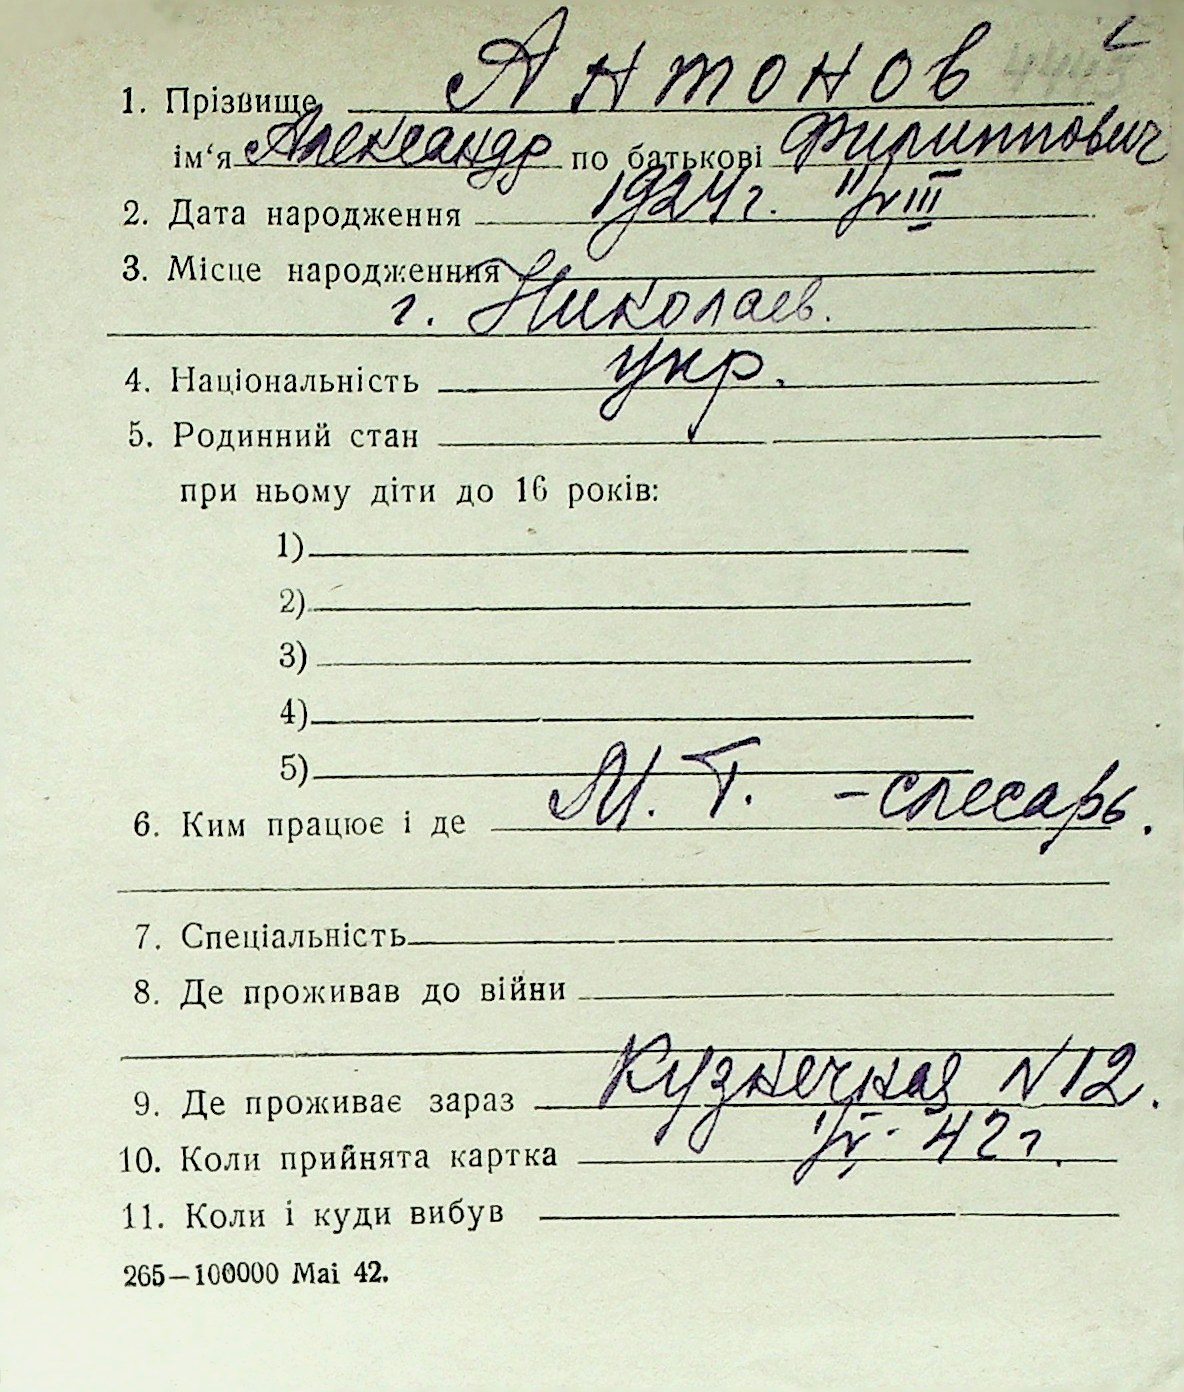 1. Прізвище Антонов
ім‘я Александр по батькові Филиппович
2. Дата народження 1924 г. 11/VIII
3. Місце народженння
г. Николаев.
4. Національність укр.
5. Родинний стан
при ньому діти до 16 років:
1)
2)
3)
4)
5)
6. Ким працює і де М. Т. – слесарь.
7. Спеціальність
8. Де проживав до війни
9. Де проживає зараз Кузнечная N 12.
10. Коли прийнята картка 42 г.
11. Коли і куди вибув
265—100000 Mai 42.